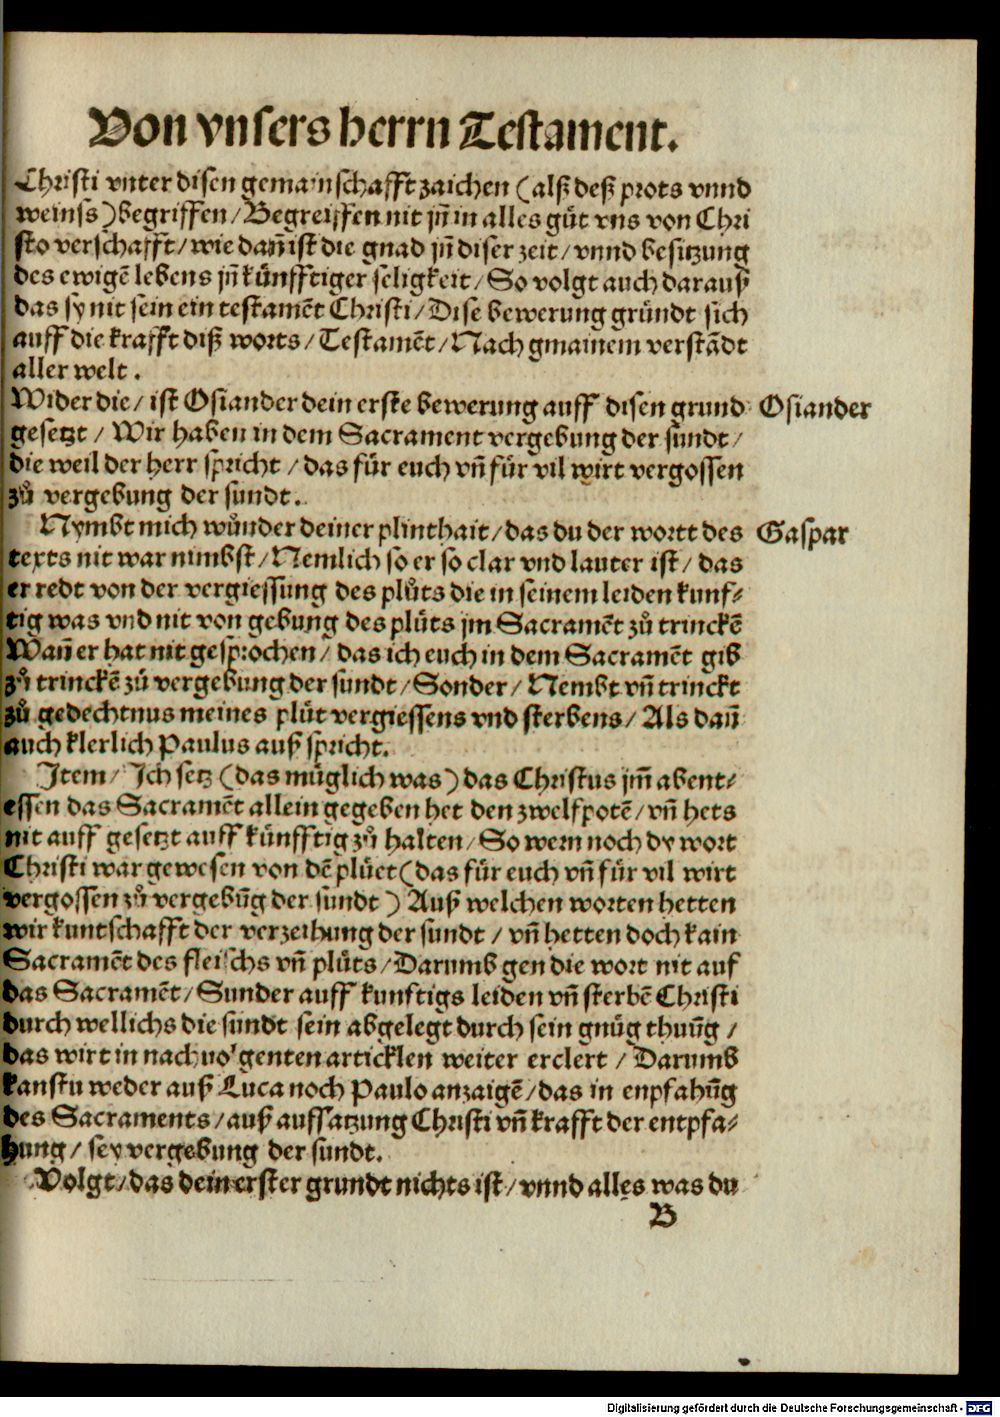 Von vnsers herrn Testament.
Christi vnter disen gemainschafft zaichen (alß deß prots vnnd
weinss) begriffen / Begreiffen nit jn̄ in alles gůt vns von Chri
sto verschafft / wie dan̄ ist die gnad jn̄ diser zeit / vnnd besitzung
des ewigē lebens jn̄ künfftiger seligkeit / So volgt auch darauß
das sy nit sein ein testamēt Christi / Dise bewerung gründt sich
auff die krafft diß worts / Testamēt / Nach gmainem verstādt
aller welt.
Wider die / ist Osiander dein erste bewerung auff disen grund Osiander
gesetzt / Wir haben in dem Sacrament vergebung der sündt /
die weil der herr spricht / das für euch vn̄ für vil wirt vergossen
zů vergebung der sündt.
Nymbt mich wůnder deiner plinthait / das du der wortt des Gaspar
texts nit war nimbst / Nemlich so er so clar vnd lauter ist / das
er redt von der vergiessung des plůts die in seinem leiden kunf-
tig was vnd nit von gebung des plůts jm Sacramēt zů trinckē
Wan̄ er hat nit gesprochen / das ich euch in dem Sacramēt gib
zů trinckē zů vergebung der sündt / Sonder / Nembt vn̄ trinckt
zů gedechtnus meines plůt vergiessens vnd sterbens / Als dan̄
auch klerlich Paulus auß spricht.
Item / Ich setz (das müglich was) das Christus jm̄ abent-
essen das Sacramēt allein gegeben het den zwelfpotē / vn̄ hets
nit auff gesetzt auff künfftig zů halten / So wern noch dy wort
Christi war gewesen von dē plůet (das für euch vn̄ für vil wirt
vergossen zů vergebūg der sündt) Auß welchen worten hetten
wir kuntschafft der verzeihung der sündt / vn̄ hetten doch kain
Sacramēt des fleischs vn̄ plůts / Darumb gen die wort nit auf
das Sacramēt / Sunder auff kunftigs leiden vn̄ sterbē Christi
durch wellichs die sündt sein abgelegt durch sein gnůg thuūg /
das wirt in nachuolgenten articklen weiter erclert / Darumb
kanstu weder auß Luca noch Paulo anzaigē / das in enpfahūg
des Sacraments / auß auffsatzung Christi vn̄ krafft der entpfa-
hung / sey vergebung der sündt.
Volgt / das dein erster grundt nichts ist / vnnd alles was du
B
Digitalisierung gefördert durch die Deutsche Forschungsgemeinschaft - DFG